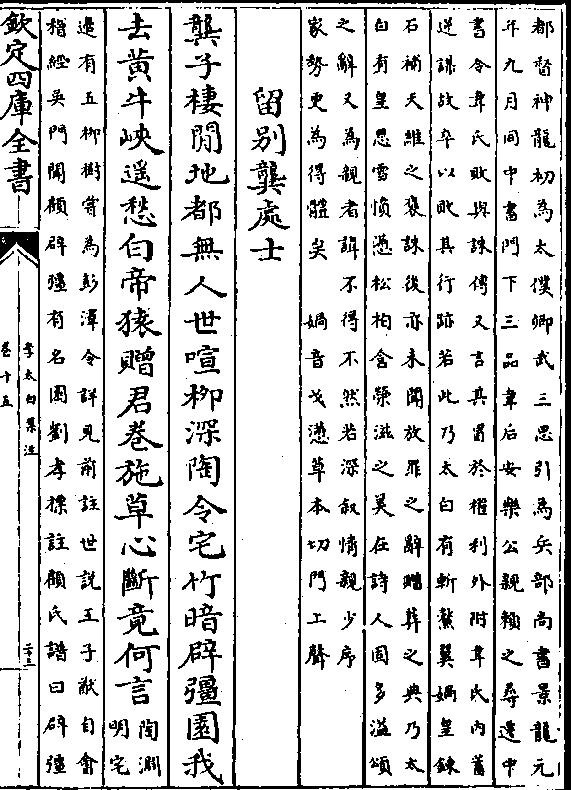 都督神龍初為太僕卿武三思引為兵部尚書景龍元
年九月同中書門下三品韋后安樂公親賴之尋遷中
書令韋氏敗與誅傳又言其冒於權利外附韋氏内蓄
逆謀故卒以敗其行跡若此乃太白有斬鰲翼媧皇鍊
石補天維之襃誅後亦未聞放罪之辭贈葬之典乃太
白有皇恩雪憤懣松柏含榮滋之美在詩人固多溢頌
之辭又為親者諱不得不然若深叙情親少序
家勢更為得體矣　媧音戈懣草本切門上聲
留别龔處士
龔子棲閒地都無人世喧柳深陶令宅竹暗辟彊園我
去黄牛峽遥愁白帝猿贈君卷葹草心斷竟何言
陶淵
明宅
邊有五柳樹嘗為彭澤令詳見前註世説王子猷自會
稽經吳門聞顧辟彊有名園劉孝標註顧氏譜曰辟彊
欽定四庫全書
李太白集注
卷十五
二十三